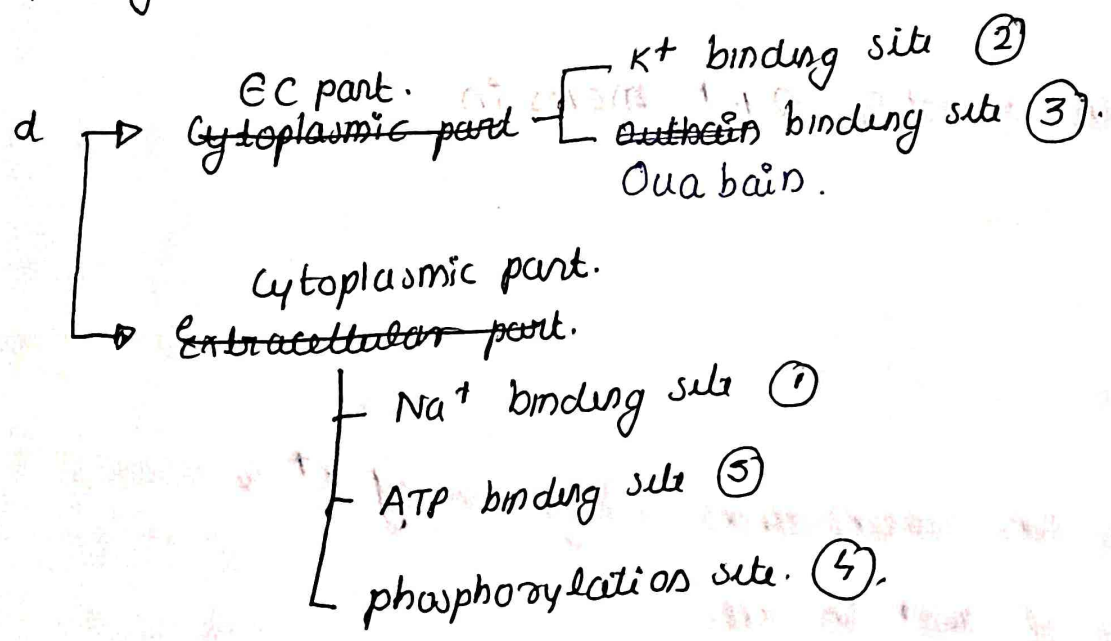 EC part.
d Cytoplasmic part
K+ binding site ②
outbain binding site ③.
Ouabain.
Cytoplasmic part.
Extracellular part.
Na+ binding site ①
ATP binding site ⑤
phosphorylation site. ④.